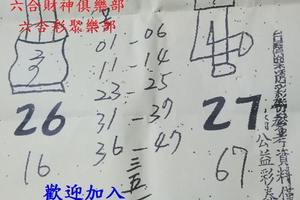 六合財神俱樂部
六合彩聚樂部
01-06
11-14
23-25
31-37
36-47
三五
26
16
27
67
公益彩券
歡迎加入